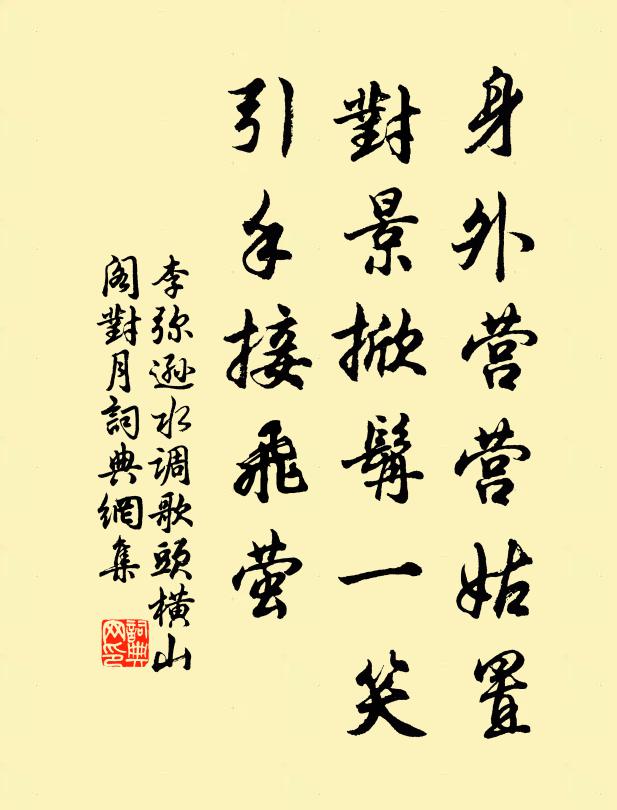 身外营营姑置
對景掀髯一笑
引手接飛萤
李弥遜水调歌頭横山
阁對月詞典網集
詞典
网印